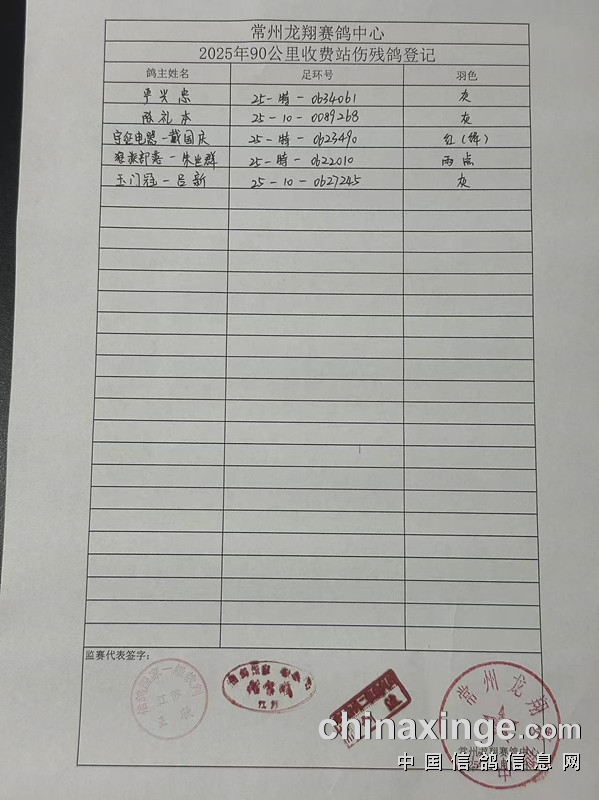 常州龙翔赛鸽中心
2025年90公里收费站伤残鸽登记
鸽主姓名 足环号 羽色
严兴忠 25-特-0634061 灰
陈礼本 25-10-0089268 灰
宇征电器-戴国庆 25-特-0623490 红(绛)
-朱 群 25-特-0622010 雨点
玉门冠-吕新 25-10-0627245 灰
监赛代表签字:
信鸽国家一级裁判
江苏
江苏
常州龙翔
常州龙翔赛鸽中心
chinaxinge.com
中国信鸽信息网